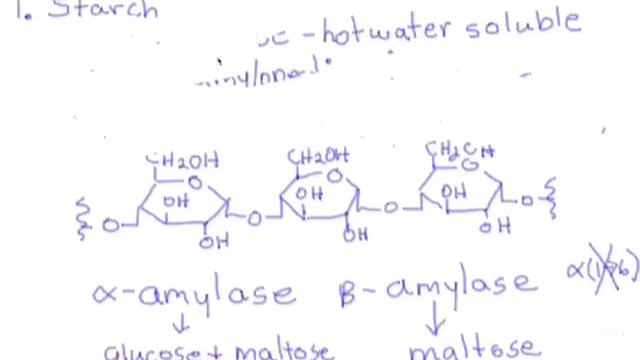 1. Starch
-hot water soluble
CH2OH CH2OH CH2OH
O O O
OH OH OH
O O O O
OH OH OH
α-amylase β-amylase α(1→6)
↓ ↓
glucose + maltose maltose